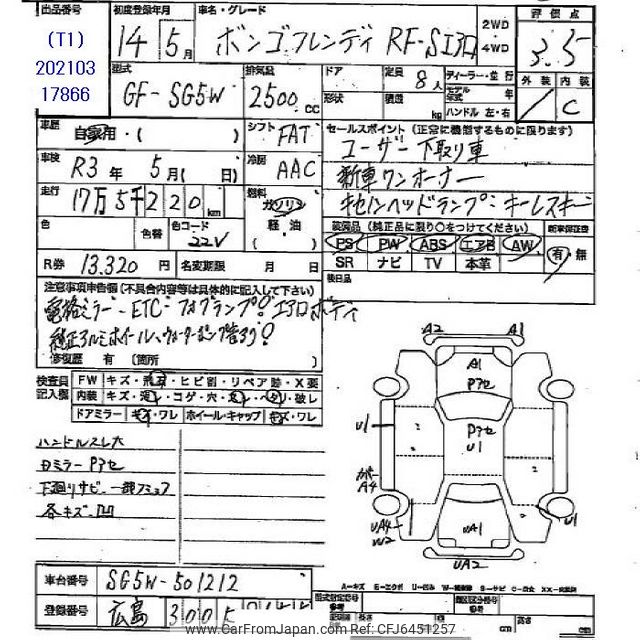 出品番号 初度登録年月 車名・グレード 2WD 評価点
(T1) 14年 5月 ボンゴフレンディ RF-Sエアロ 4WD 3.5
202103
17866
型式 排気量 ドア 定員 8人 ディーラー・並行 外装 内装
GF-SG5W 2500cc 形状 積載 kg モデル年式 年 ハンドル 左・右 C
車歴 自家用・( ) シフト FAT セールスポイント (正常に機能するものに限ります)
ユーザー下取り車
車検 R3年 5月( 日) 冷房 AAC 新車ワンオーナー
走行 17万5千220km 燃料 ガソリン 軽・油 キセノンヘッドランプ:キーレスキー
色 色替 色コード 22V 装備品 (純正品に限り○をつけてください) 新車保証書
PS PW ABS エアB AW 有・無
SR ナビ TV 本革
R券 13.320円 名変期限 月 日 後日品
注意事項申告欄 (不具合含めは具体的に記入して下さい)
電格ミラー・ETC:フォグランプ!!エアロボディ
純正アルミホイール、
修復歴 有 (箇所 )
検査員記入欄 FW キズ・飛石・ヒビ割・リペア跡・X要
内装 キズ・汚レ・コゲ・穴・スレ・ヘタリ・破レ
ドアミラー キズ・ワレ ホイール・キャップ キズ・ワレ
ハンドルスレ大
Dミラー Pアセ
下廻りサビ 一部フミュフ
各キズ・凹
A2 A1
A1
Pアセ
Pアセ
U1
U1
カバーA4
UA4
W2
UA1
U1
UA2
A-キズ E-エクボ U-凹み W-補修跡 S-サビ C-腐食 XX-交換済
車台番号 SG5W-501212
登録番号 広島 300
www.CarFromJapan.com Ref: CFJ6451257